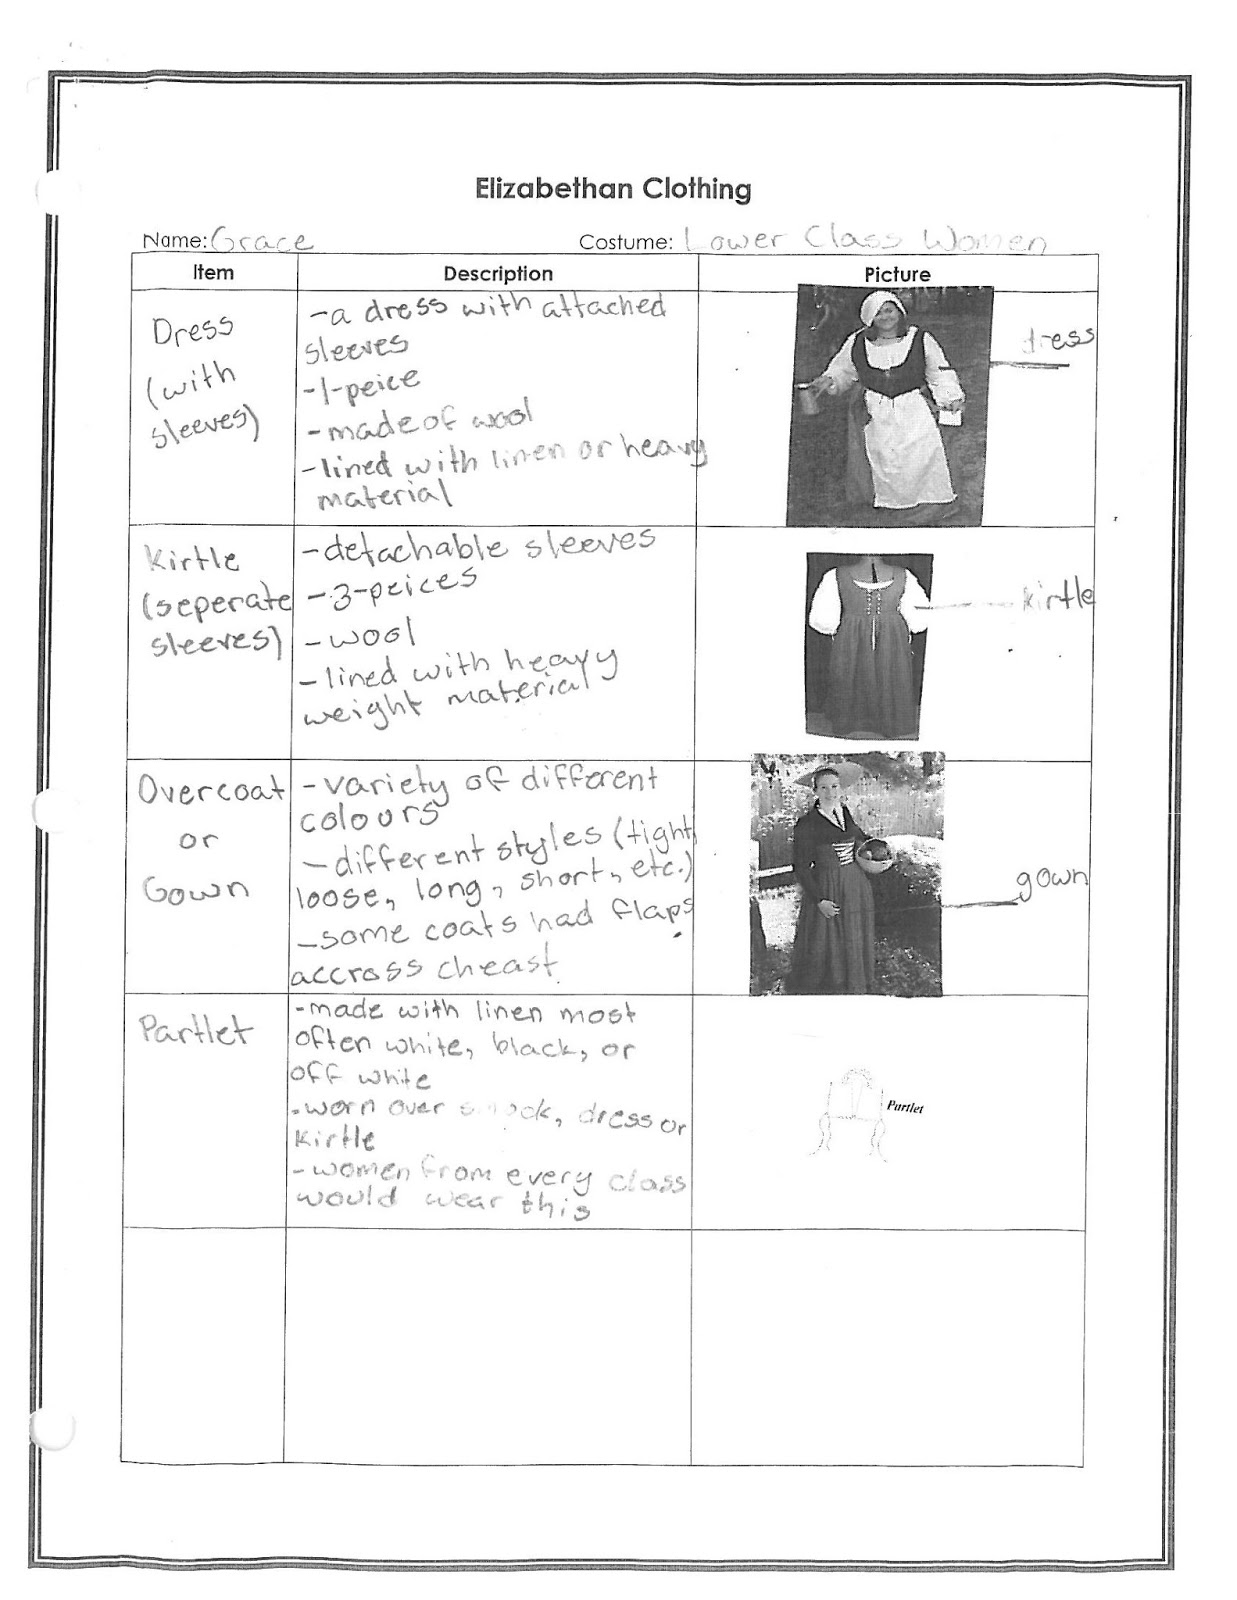 Elizabethan Clothing
Name: Grace Costume: Lower Class Women
Item Description Picture
Dress
(with
sleeves)
-a dress with attached
sleeves
-1-peice
-made of wool
-lined with linen or heavy
material
dress
Kirtle
(seperate
sleeves)
-detachable sleeves
-3-peices
-wool
-lined with heavy
weight material
kirtle
Overcoat
or
Gown
-variety of different
colours
-different styles (tight,
loose, long, short, etc.)
-some coats had flaps
accross cheast.
gown
Partlet
-made with linen most
often white, black, or
off white
-worn over smock, dress or
kirtle
-women from every class
would wear this
Partlet